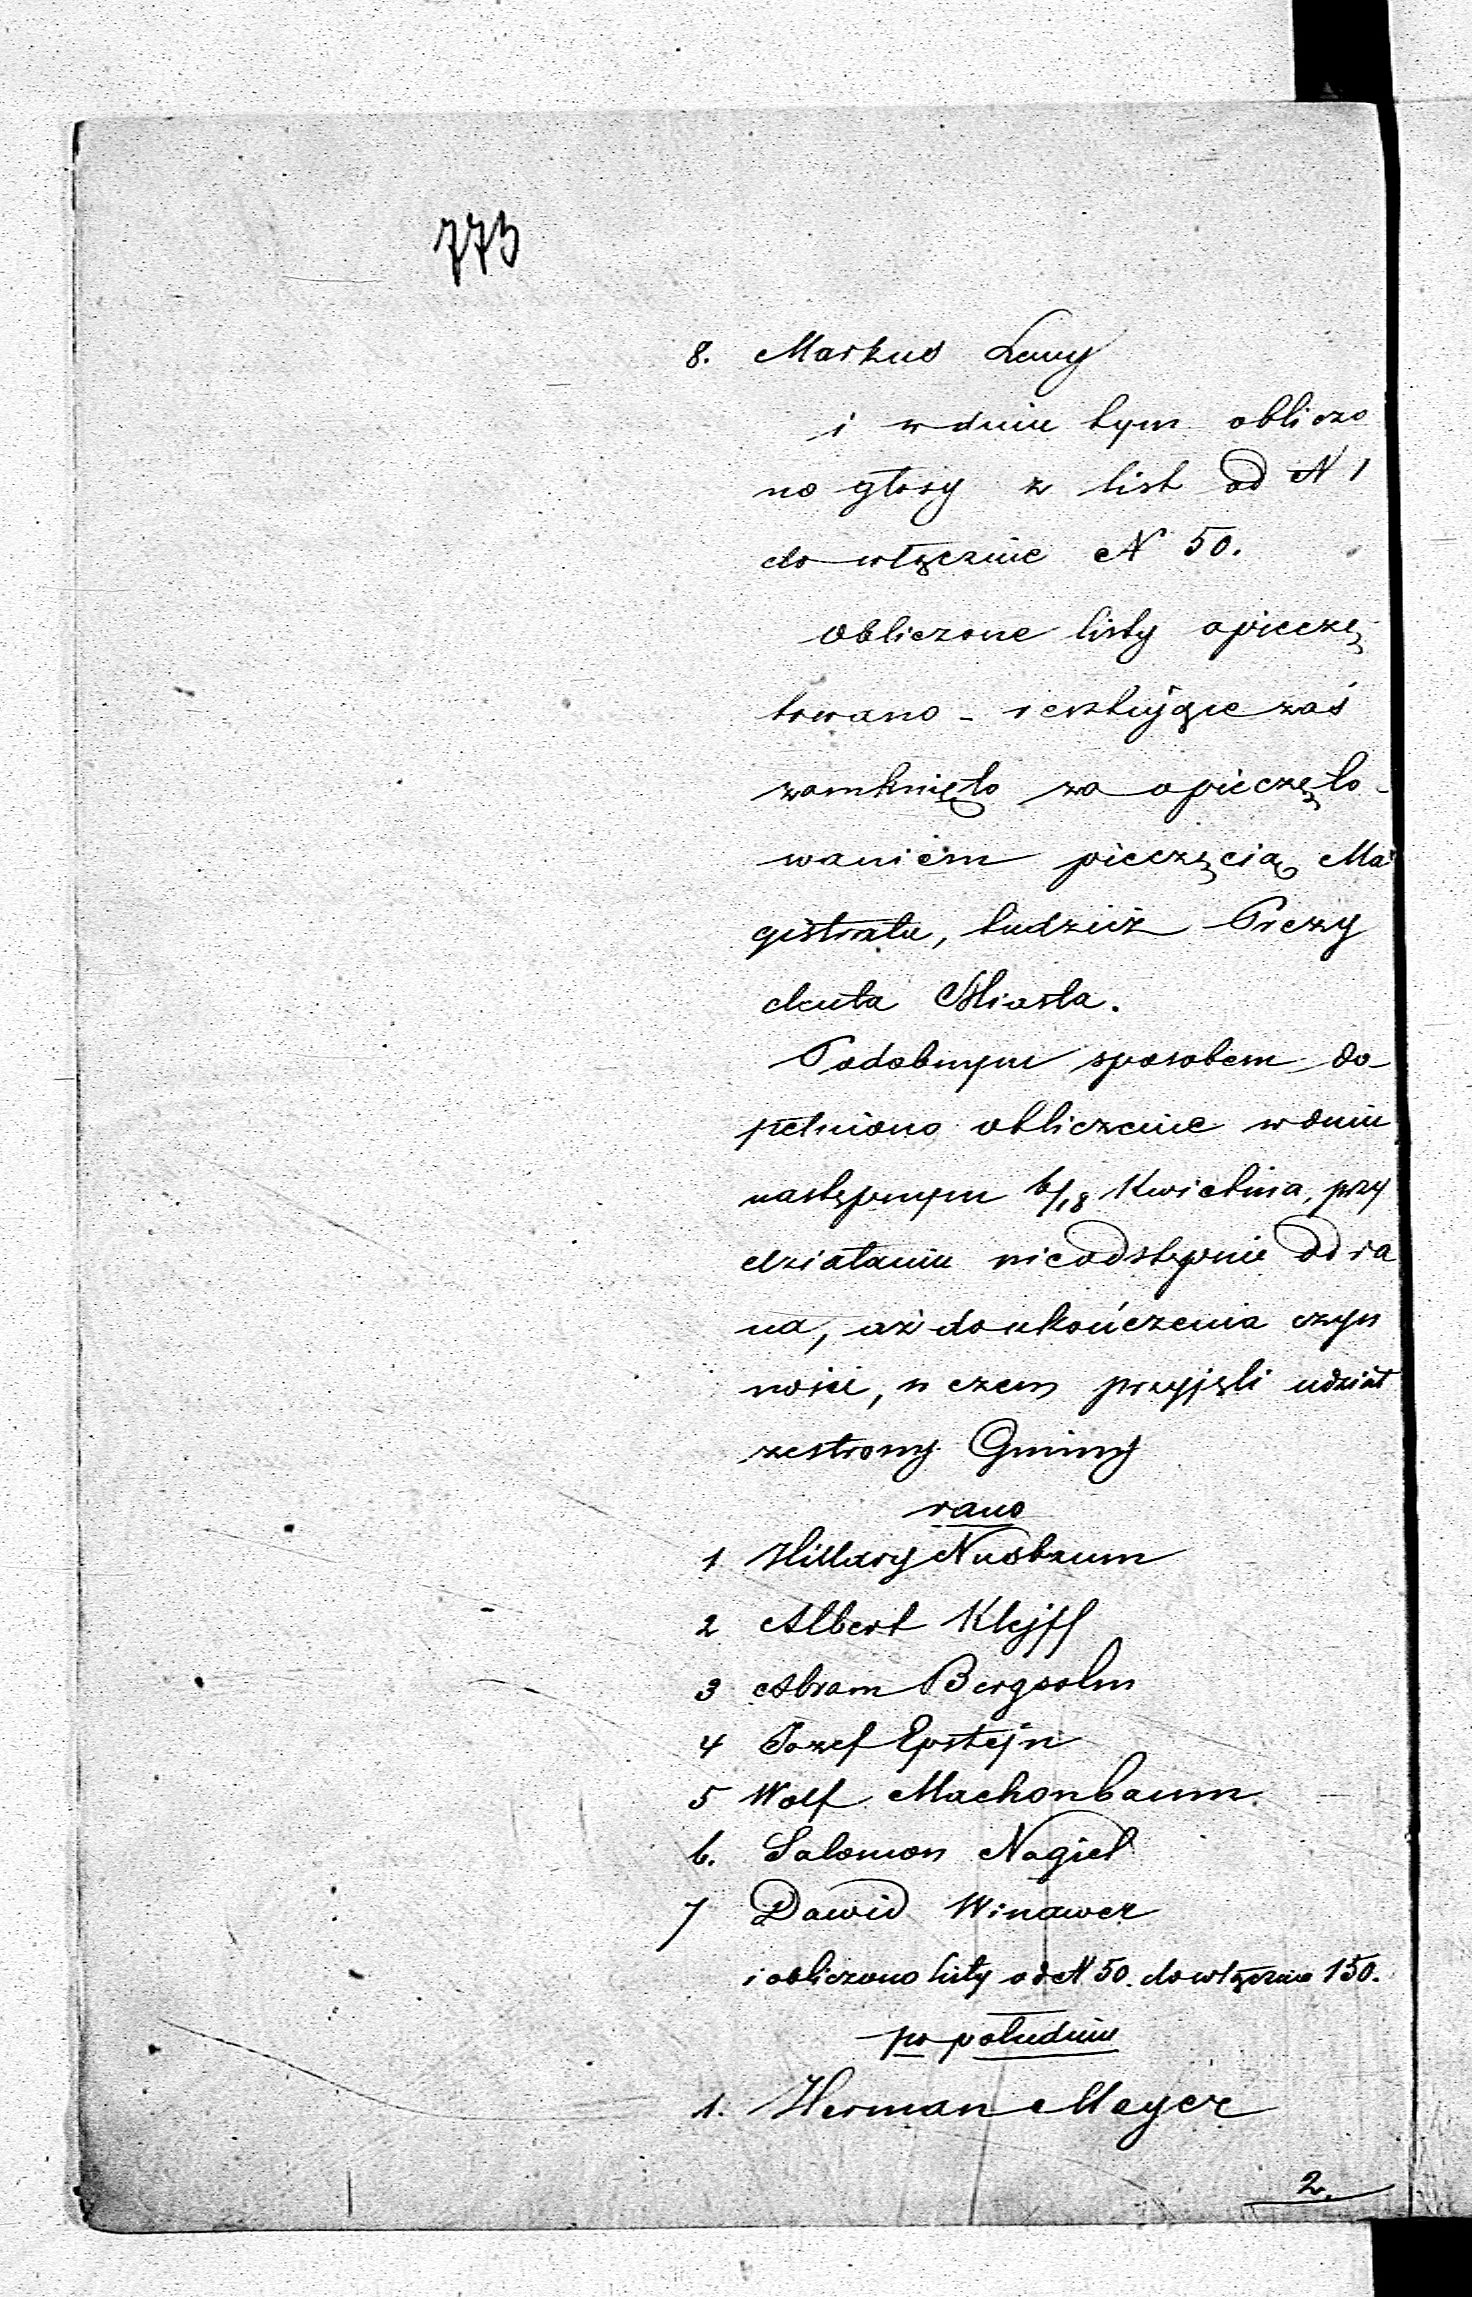 773
8. Markus Lewy
i w dniu tym obliczo
no głosy z list od N 1
do włącznie N 50.
Obliczone listy opieczę
towano - resztujące zaś
zamknięto za opieczęto-
waniem pieczęcią Ma
gistratu, tudzież Prezy
denta Miasta.
Podobnym sposobem do-
pełniono obliczenie w dniu
następnym 6/18 Kwietnia, przy
działaniu nieodstępnie od ra
na, aż do ukończenia czyn
ności, w czem przyjęli udział
ze strony Gminy
rano
1 Hillary Nusbaum
2 Albert Klejff
3 Abram Bergsolm
4 Józef Epstejn
5 Wolf Machonbaum
6. Salomon Nagiel
7 Dawid Winawer
i obliczono listy od N 50. do włącznie 150.
po południu
1. Herman Meyer
2.